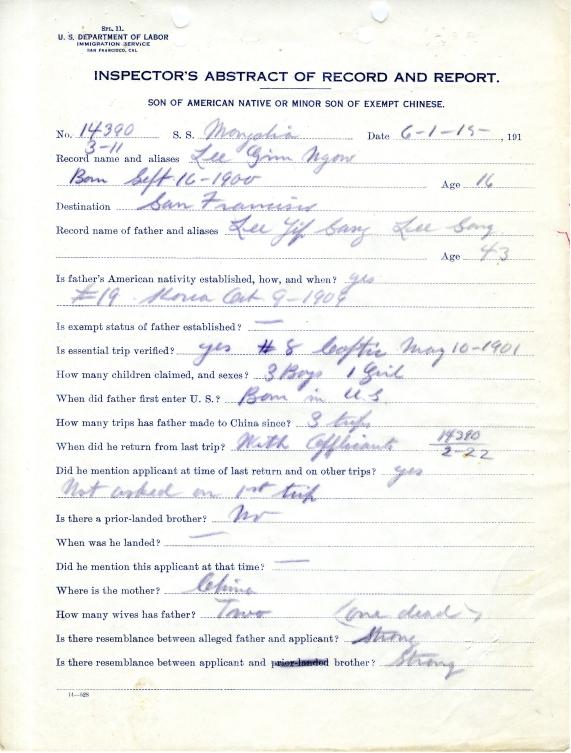 Spl. 11.
U. S. DEPARTMENT OF LABOR
IMMIGRATION SERVICE
SAN FRANCISCO, CAL.
INSPECTOR'S ABSTRACT OF RECORD AND REPORT.
SON OF AMERICAN NATIVE OR MINOR SON OF EXEMPT CHINESE.
No. 14390 S. S. Mongolia Date 6-1-15-, 191
3-11
Record name and aliases Lee Gim Ngow
Born Sept 16-1900 Age 16
Destination San Francisco
Record name of father and aliases Lee Yip Sang Lee Song
Age 43
Is father's American nativity established, how, and when? yes
#19 Korea Oct 9-1909
Is exempt status of father established? —
Is essential trip verified? yes #8 Coptic May 10-1901
How many children claimed, and sexes? 3 Boys 1 Girl
When did father first enter U. S.? Born in U.S.
How many trips has father made to China since? 3 trips
When did he return from last trip? With Applicants 14390
2-22
Did he mention applicant at time of last return and on other trips? yes
Not asked on 1st trip
Is there a prior-landed brother? No
When was he landed? —
Did he mention this applicant at that time? —
Where is the mother? China
How many wives has father? Two (one dead)
Is there resemblance between alleged father and applicant? Strong
Is there resemblance between applicant and prior-landed brother? Strong
14—628